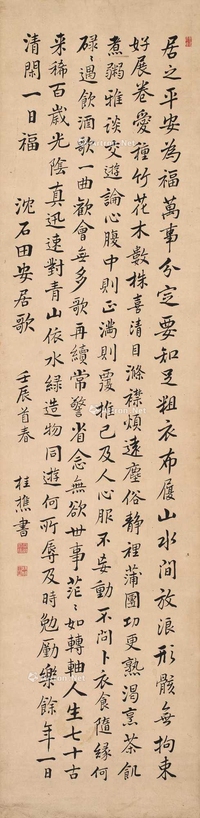 居之平安為福萬事分定要知足粗衣布履山水間放浪形骸無拘束
好展卷愛種竹花木數株喜清目滌煩遠塵俗靜裡蒲團功更熟渴烹茶飢
煮粥雅談交遊論心腹中則正滿則覆推己及人心服不妄動不問卜衣食隨緣何
碌〻遇飲酒歌一曲歡會無多歌再續常警省念無欲世事茫〻如轉軸人生七十古
来稀百歲光陰真迅速對青山依水綠造物同遊何所辱及時勉勵樂餘年一日
清閑一日福 沈石田安居歌 壬辰首春 桂樵書